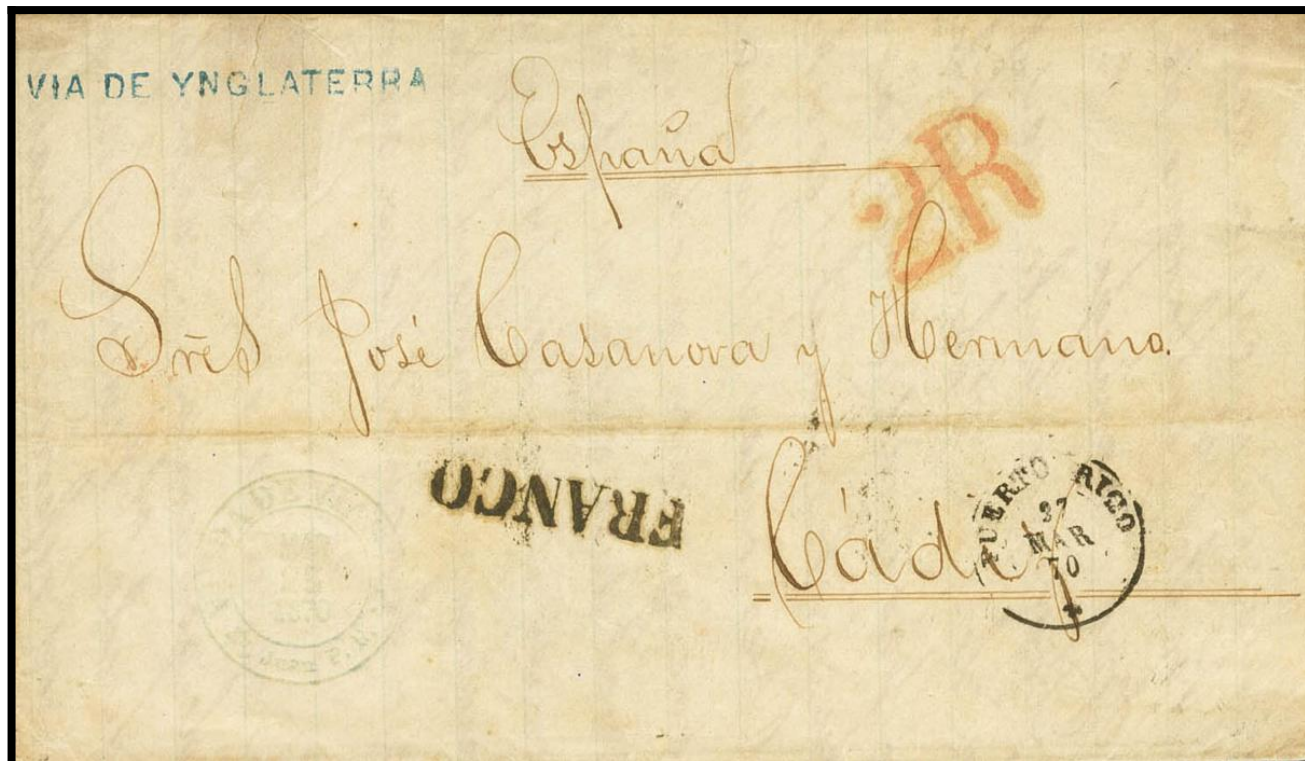 VIA DE YNGLATERRA
España
2R
Sres José Casanova y Hermano.
FRANCO
Cádiz
PUERTO RICO
MAR
70